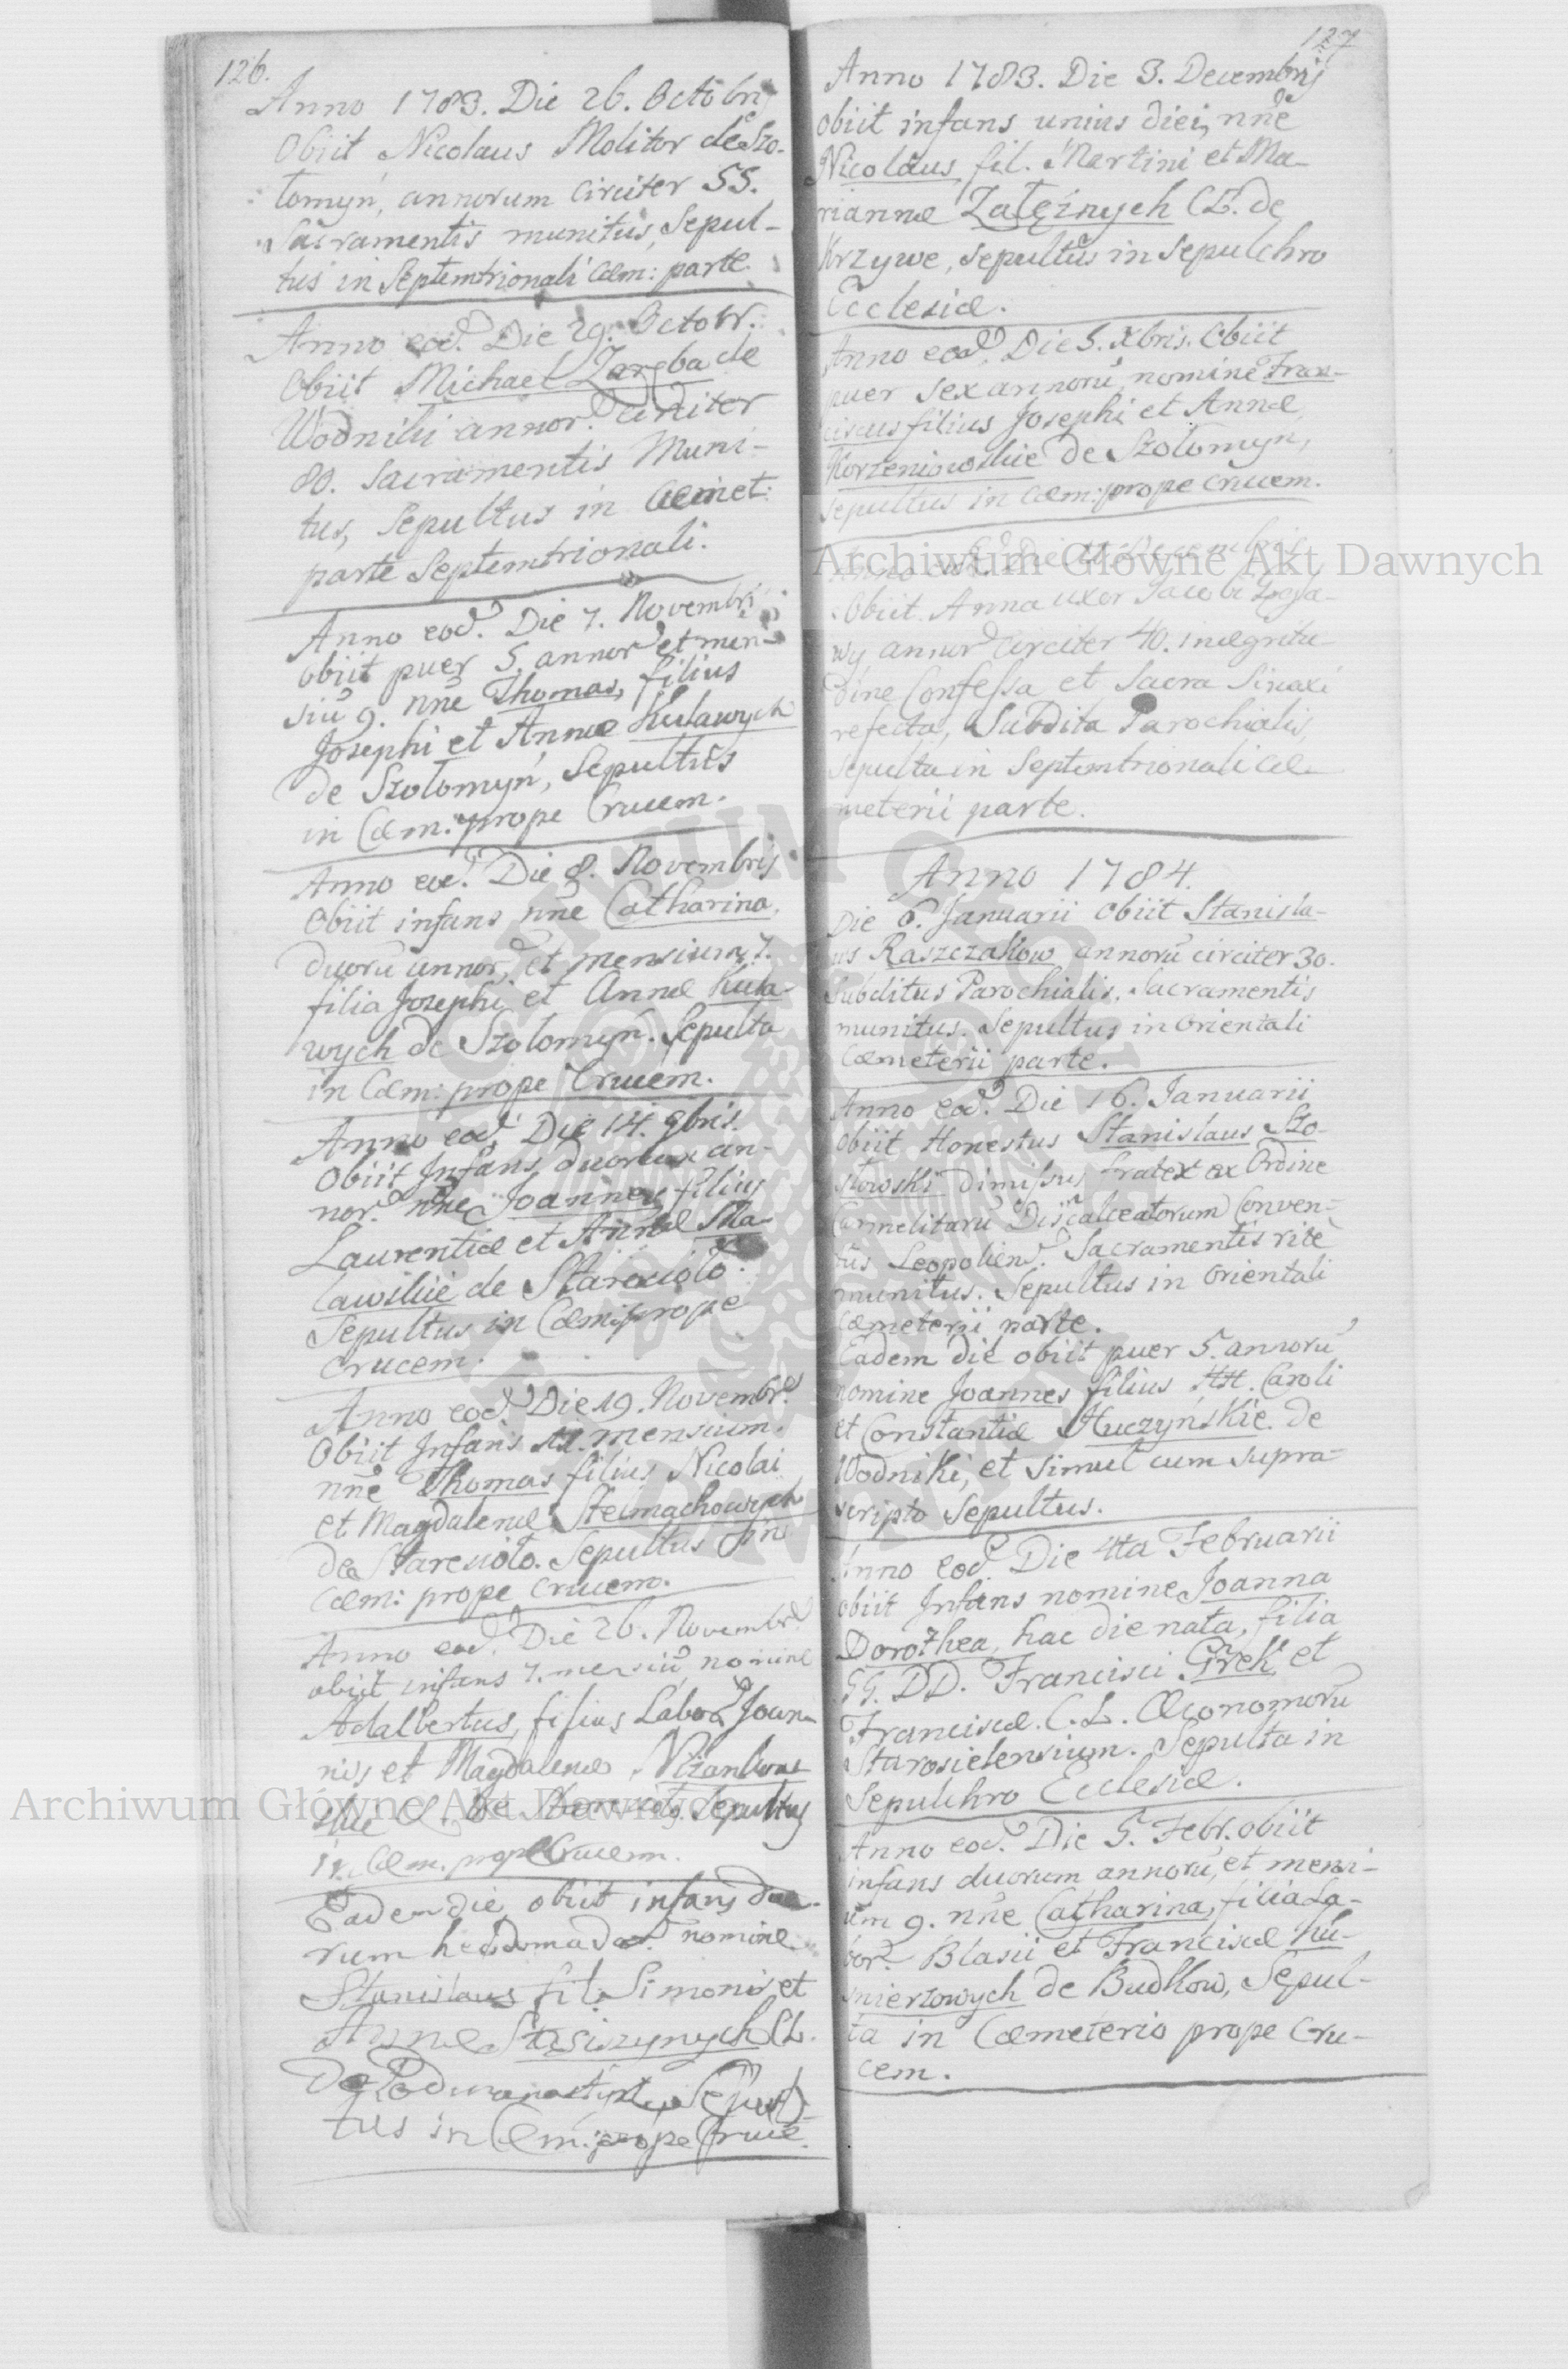 126.
Anno 1783. Die 26. Octobris
Obiit Nicolaus Molitor de Szo-
tomyń, annorum circiter 55.
Sacramentis munitus, Sepul-
tus in Septemtrionali Cœm: parte.
Anno eod. Die 29. Octobr.
Obiit Michael Zaręba de
Wodniki annor. circiter
80. Sacramentis Muni-
tus, Sepultus in Cœmet:
parte Septemtrionali.
Anno eod. Die 7. Novembris
obiit puer 5. annor et men-
siũ 9. nñe Thomas, filius
Josephi et Annæ Kulawych
de Szolomyń, Sepultus
in Cœm: prope Crucem.
Anno eod. Die 8. Novembris
Obiit infans nñe Catharina,
duorũ annor, et mensium 7.
filia Josephi et Annæ Kula-
wych de Szolomyń. Sepulta
in Cœm: prope Crucem.
Anno eod. Die 14. 9bris.
Obiit Infans, duorum an-
nor. nñe Joannes filius
Laurentiæ et Annæ Ska-
lawskie de Staresioło.
Sepultus in Cœm: prope
Crucem.
Anno eod. Die 19. Novembr.
Obiit Infans 11. mensium.
nñe Thomas filius Nicolai
et Magdalenæ Stelmachowych
de Staresioło. Sepultus in
Cœm: prope Crucem.
Anno eod. Die 26. Novembr
obiit infans 7. mensiũ nomine
Adalbertus, filius Labor. Joan-
nis et Magdalenæ
skie de Staresioło. Sepultus
in Cœm. prope Crucem.
Eadem die obiit infans dua-
rum hebdomadar. nomine
Stanislaus fil. Simonis et
Annæ Stęsiszynych CL.
de Podmanastyrz Sepul-
tus in Cœm: prope Cruce.
127
Anno 1783. Die 3. Decembris
obiit infans unius diei, nñe
Nicolaus fil. Martini et Ma-
riannæ Zalęźnych CL. de
Krzywe, sepultus in sepulchro
Ecclesiæ.
Anno eod. Die 5. Xbris. Obiit
puer sex annorũ, nomine Fran-
ciscus filius Josephi et Annæ
Korzeniowskie de Szolomyń,
Sepultus in Cœm: prope Crucem.
Anno eod. Die 11. Decembris
Obiit Anna uxor Jacobi
wy annor circiter 40. in ægritu-
dine Confessa et Sacra Sinaxi
refecta, Subdita Parochialis,
Sepulta in Septemtrionali Cœ-
meterii parte.
Anno 1784.
Die 6. Januarii Obiit Stanisla-
us Raszczakow annorũ circiter 30.
Subditus Parochialis. Sacramentis
munitus. Sepultus in Orientali
Cœmeterii parte.
Anno eod. Die 16. Januarii
Obiit Honestus Stanislaus Szo-
stowski dimissus frater ex Ordine
Carmelitarũ Discalceatorum Conven-
tus Leopolien. Sacramentis rite
munitus. Sepultus in Orientali
Cœmeterii parte.
Eadem die obiit puer 5. annorũ
nomine Joannes filius HH. Caroli
et Constantiæ Huczyńskie. de
Wodniki, et simul cum supra-
scripto Sepultus.
Anno eod. Die 4ta Februarii
obiit Infans nomine Joanna
Dorothea, hac die nata, filia
GG. DD. Francisci Grek et
Franciscæ. C. L. Œconomorũ
Starosielensium. Sepulta in
Sepulchro Ecclesiæ.
Anno eod. Die 5. Febr. obiit
infans duorum annorũ, et mensi-
um 9. nñe Catharina, filia La-
bor. Blasii et Franciscæ Ku-
snierzowych de Budkow, Sepul-
ta in Cœmeterio prope Cru-
cem.
Archiwum Główne Akt Dawnych
Archiwum Główne Akt Dawnych